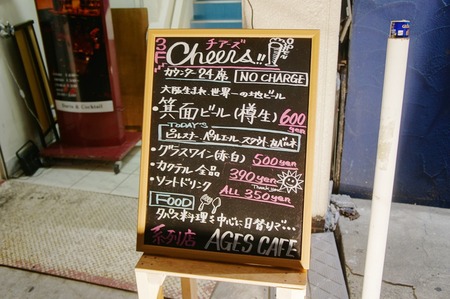 3F チアーズ
Cheers!!
カウンター24席 NO CHARGE
大阪生まれ、世界一の地ビール
・箕面ビール(樽生) 600yen
TODAY'S
ピルスナー ペールエール スタウト カベルネ
・グラスワイン(赤白) 500yen
・カクテル全品 390yen
・ソフトドリンク ALL 350yen
Thank you!
FOOD
タパス料理を中心に日替りで…
系列店 AGES CAFE
Darts & Cocktail